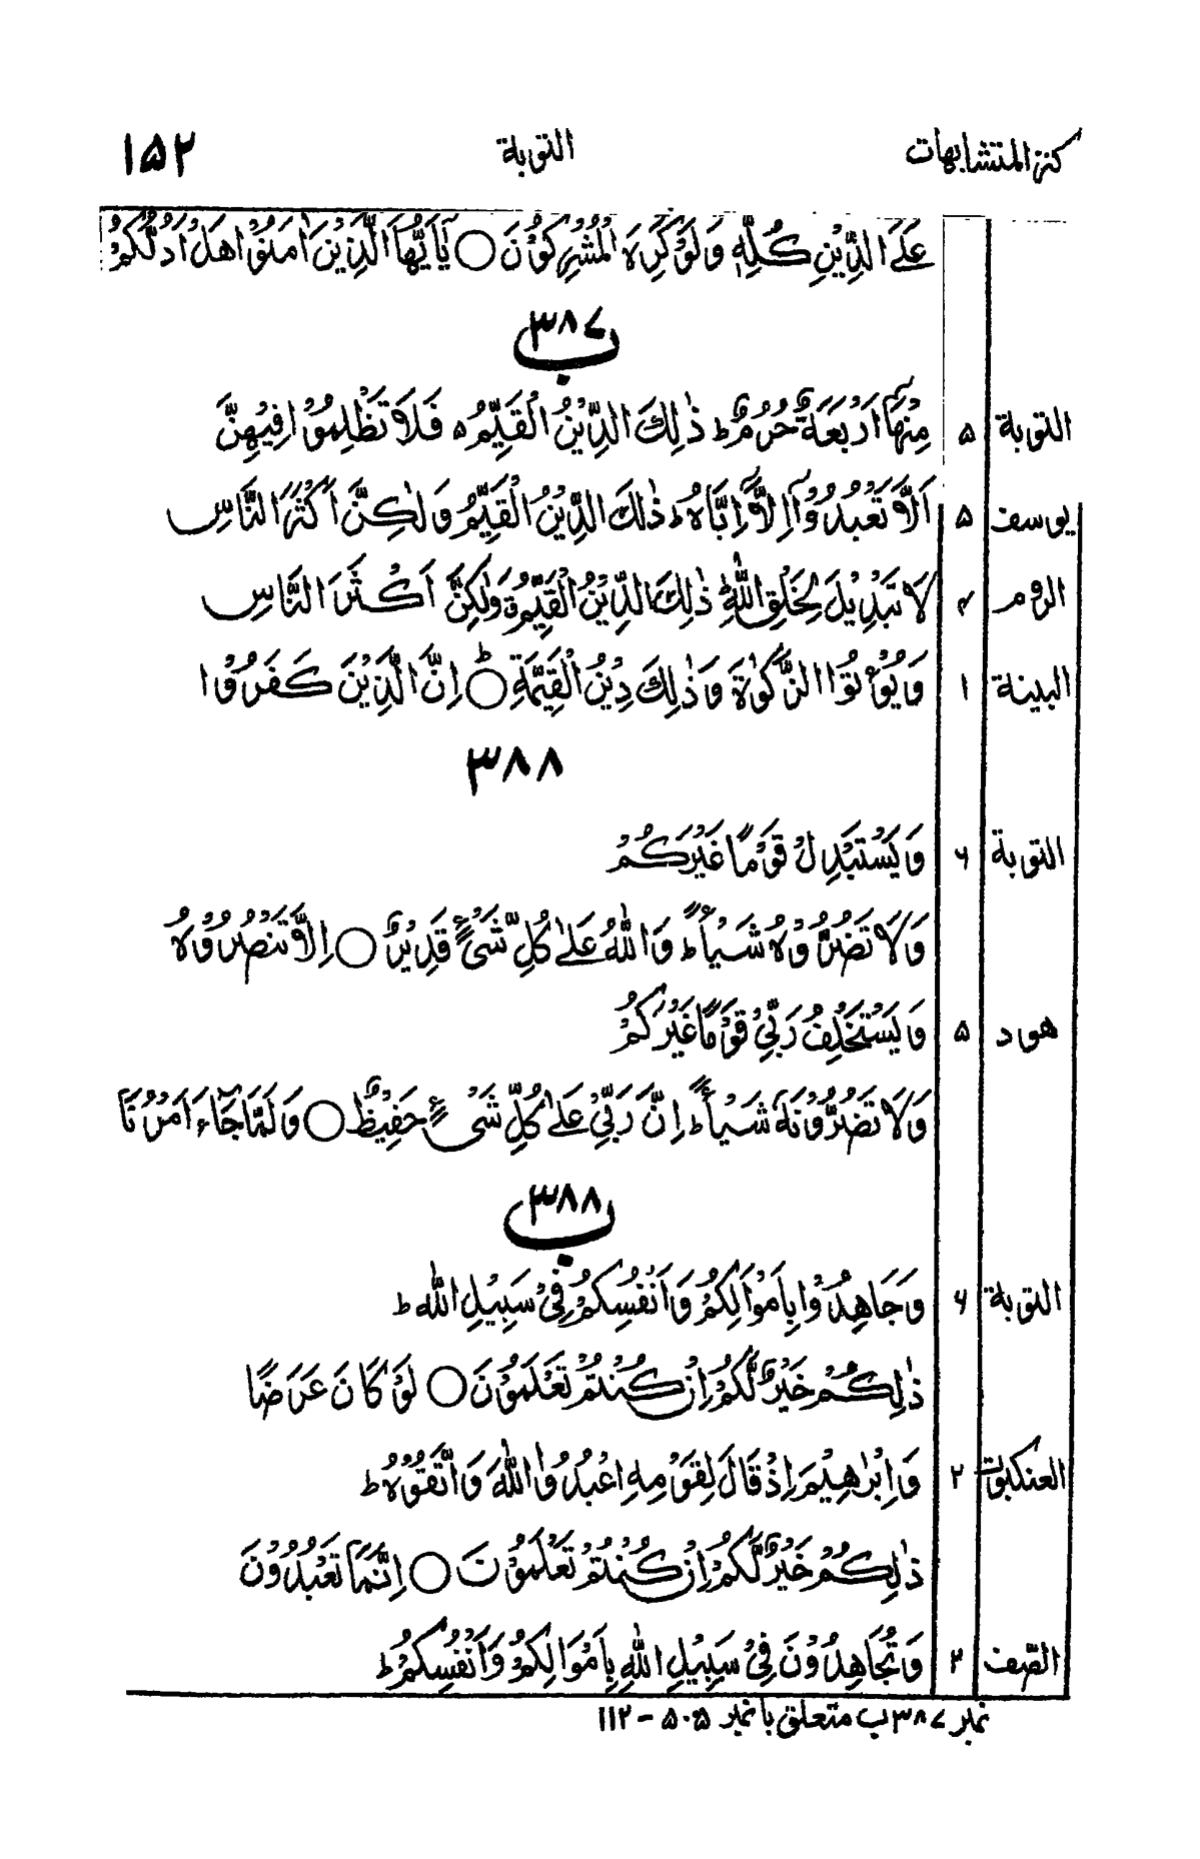 كنز المتشابهات التوبة ۱۵۲
عَلَى الدِّيْنِ كُلِّهٖ وَلَوْ كَرِهَ الْمُشْرِكُوْنَ ○ يٰۤاَيُّهَا الَّذِيْنَ اٰمَنُوْا هَلْ اَدُلُّكُمْ
۳۸۷ ب
التوبة ۵ مِنْهَاۤ اَرْبَعَةٌ حُرُمٌ ؕ ذٰلِكَ الدِّيْنُ الْقَيِّمُ ۵ فَلَا تَظْلِمُوْا فِيْهِنَّ
يوسف ۵ اَلَّا تَعْبُدُوْۤا اِلَّاۤ اِيَّاهُ ؕ ذٰلِكَ الدِّيْنُ الْقَيِّمُ وَلٰكِنَّ اَكْثَرَ النَّاسِ
الروم ۴ لَا تَبْدِيْلَ لِخَلْقِ اللّٰهِ ؕ ذٰلِكَ الدِّيْنُ الْقَيِّمُ وَلٰكِنَّ اَكْثَرَ النَّاسِ
البينة ۱ وَيُؤْتُوا الزَّكٰوةَ وَذٰلِكَ دِيْنُ الْقَيِّمَةِ ○ؕ اِنَّ الَّذِيْنَ كَفَرُوْا
۳۸۸
التوبة ۶ وَيَسْتَبْدِلْ قَوْمًا غَيْرَكُمْ
وَلَا تَضُرُّوْهُ شَيْـًٔا ؕ وَاللّٰهُ عَلٰى كُلِّ شَيْءٍ قَدِيْرٌ ○ اِلَّا تَنْصُرُوْهُ
هود ۵ وَيَسْتَخْلِفُ رَبِّيْ قَوْمًا غَيْرَكُمْ
وَلَا تَضُرُّوْنَهٗ شَيْـًٔا ؕ اِنَّ رَبِّيْ عَلٰى كُلِّ شَيْءٍ حَفِيْظٌ ○ وَلَمَّا جَآءَ اَمْرُنَا
۳۸۸ ب
التوبة ۶ وَجَاهِدُوْا بِاَمْوَالِكُمْ وَاَنْفُسِكُمْ فِيْ سَبِيْلِ اللّٰهِ ؕ
ذٰلِكُمْ خَيْرٌ لَّكُمْ اِنْ كُنْتُمْ تَعْلَمُوْنَ ○ لَوْ كَانَ عَرَضًا
العنكبوت ۲ وَاِبْرٰهِيْمَ اِذْ قَالَ لِقَوْمِهِ اعْبُدُوا اللّٰهَ وَاتَّقُوْهُ ؕ
ذٰلِكُمْ خَيْرٌ لَّكُمْ اِنْ كُنْتُمْ تَعْلَمُوْنَ ○ اِنَّمَا تَعْبُدُوْنَ
الصّف ۲ وَتُجَاهِدُوْنَ فِيْ سَبِيْلِ اللّٰهِ بِاَمْوَالِكُمْ وَاَنْفُسِكُمْ ؕ
نمبر ۳۸۷ب متعلق با نمبر ۵۰۵ - ۱۱۲